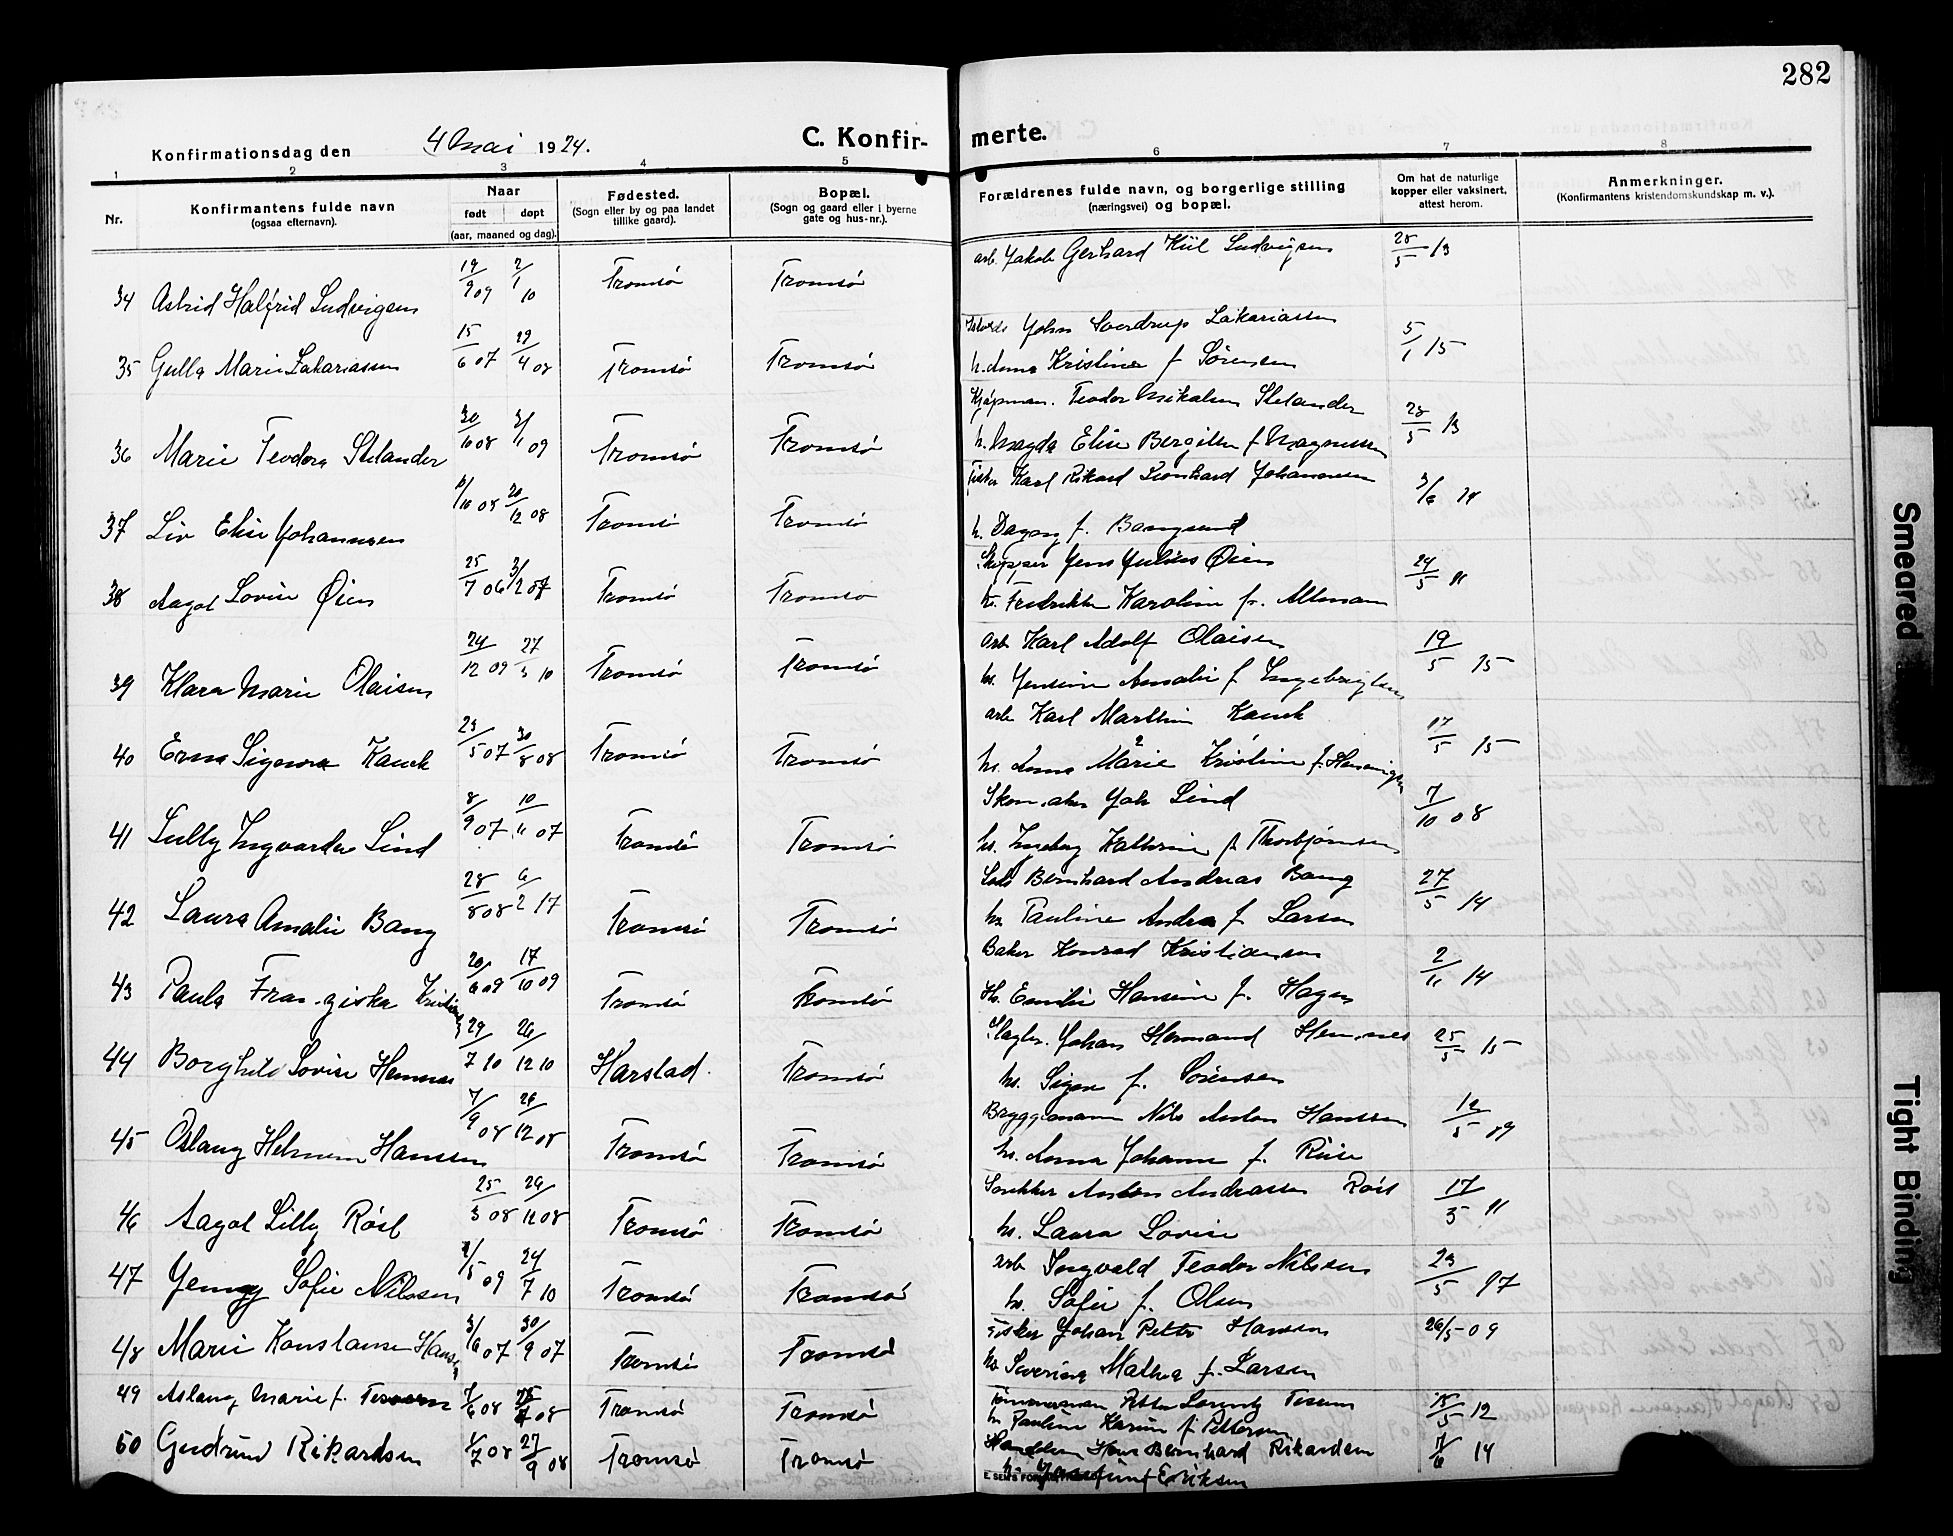 282
Konfirmationsdag den 4 mai 1924.
C. Konfir-merte.
1 2 3 4 5 6 7 8
Nr.
Konfirmantens fulde navn
(ogsaa efternavn).
Naar
født døpt
(aar, maaned og dag).
Fødested.
(Sogn eller by og paa landet
tillike gaard).
Bopæl.
(Sogn og gaard eller i byerne
gate og hus-nr.).
Forældrenes fulde navn, og borgerlige stilling
(næringsvei) og bopæl.
Om hat de naturlige
kopper eller vaksinert,
attest herom.
Anmerkninger.
(Konfirmantens kristendomskundskap m. v.).
34 Astrid Halfrid Ludvigsen 19/9 09 2/1 10 Tromsø Tromsø arb. Jakob Gerhard Kiil Ludvigsen 28/5 13
35 Gulla Marie Zakariassen 15/6 07 29/4 08 Tromsø Tromsø John Sverdrup Zakariassen 5/1 15
h. Anna Kristine f. Sørensen
36 Marie Teodora Stelander 30/10 08 3/1 09 Tromsø Tromsø Kjøpman. Teodor Mikalsen Stelander 28/5 13
h. Magda Elise Bergitte f. Magnussen
37 Liv Elise Johannesen 20/12 08 Tromsø Tromsø Fisker Karl Rikard Leonhard Johannesen
h. Dagny f. Bangsund
38 Aagot Lovise Øien 25/7 06 3/2 07 Tromsø Tromsø Skipper Jens Julius Øien 24/5 11
h. Fredrikke Karoline f. Altmann
39 Klara Marie Olaisen 24/12 09 27/3 10 Tromsø Tromsø arb Karl Adolf Olaisen 19/5 15
hs. Jensine Amalie f. Ingebrigtsen
40 Erna Signora Kauck 23/5 07 30/8 08 Tromsø Tromsø arb Karl Marthin Kauck 17/5 15
hs. Anna Marie Kristine f. Henningsen
41 Lully Ingvarda Lind 8/9 07 10/11 07 Tromsø Tromsø Skomaker Joh Lind 7/10 08
hs. Ingeborg Kathrine f. Thorbjørnsen
42 Laura Amalie Bang 28/8 08 6/2 17 Tromsø Tromsø Lods Bernhard Andreas Bang 27/5 14
hs. Pauline Andrea f. Larsen
43 Paula Franziska Kristiansen 20/6 09 17/10 09 Tromsø Tromsø Baker Konrad Kristiansen 2/11 14
Hs. Emilie Hansine f. Hagen
44 Borghild Lovise Hemnes 29/7 10 26/12 10 Harstad. Tromsø Slagter. Johan Hermand Hemnes 25/5 15
hs. Signe f. Sørensen
45 Oslaug Helmine Hanssen 7/9 08 26/12 08 Tromsø Tromsø Bryggemann Nils Anton Hanssen 12/5 09
hs. Anna Johanne f. Riise
46 Aagot Lilly Røst 25/3 08 29/11 08 Tromsø Tromsø Snekker Anton Andreassen Røst 17/5 11
hs. Laura Lovise
47 Jenny Sofie Nilssen 1/5 09 24/7 10 Tromsø Tromsø arb Ingvald Teodor Nilssen 23/5 17
hs. Sofie f. Olsen
48 Marie Konstanse Hansen 3/6 07 30/9 07 Tromsø Tromsø Fisker Johan Petter Hansen 26/5-09
hs Severine Mathea f. Larsen
49 Aslaug Marie f. Tessem 7/6 08 Tromsø Tromsø Tømmerman Petter Lorentz Tessem 18/5 12
hs Pauline Karine f. Pettersen
50 Gudrun Rikardsen 1/7 08 27/9 08 Tromsø Tromsø Handelsm Hans Bernhard Rikardsen 7/6 14
hs. Josefine f. Eriksen
Smeared
Tight Binding